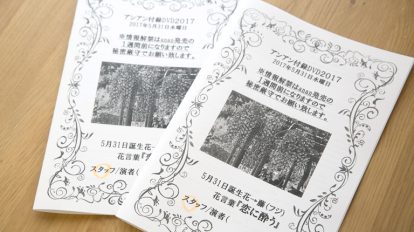 アンアン付録DVD2017
2017年5月31日水曜日
※情報解禁はanan発売の
1週間前になりますので
秘密厳守でお願い致します。
5月31日誕生花―藤(フジ)
花言葉『
スタッフ/演者(
アンアン付録DVD2017
2017年5月31日水曜日
※情報解禁はanan発売の
1週間前になりますので
秘密厳守でお願い致します。
5月31日誕生花―藤(フジ)
花言葉『恋に酔う』
スタッフ/演者(